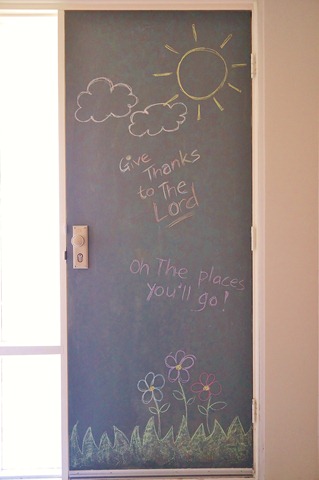 Give
Thanks
to The
Lord
Oh The places
you'll go!